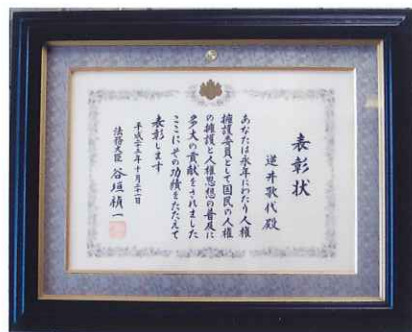 表彰状
逆井歌代殿
あなたは永年にわたり人権
擁護委員として国民の人権
の擁護と人権思想の普及に
多大の貢献をされました
ここにその功績をたたえて
表彰します
平成二十五年十月二十一日
法務大臣 谷垣禎一